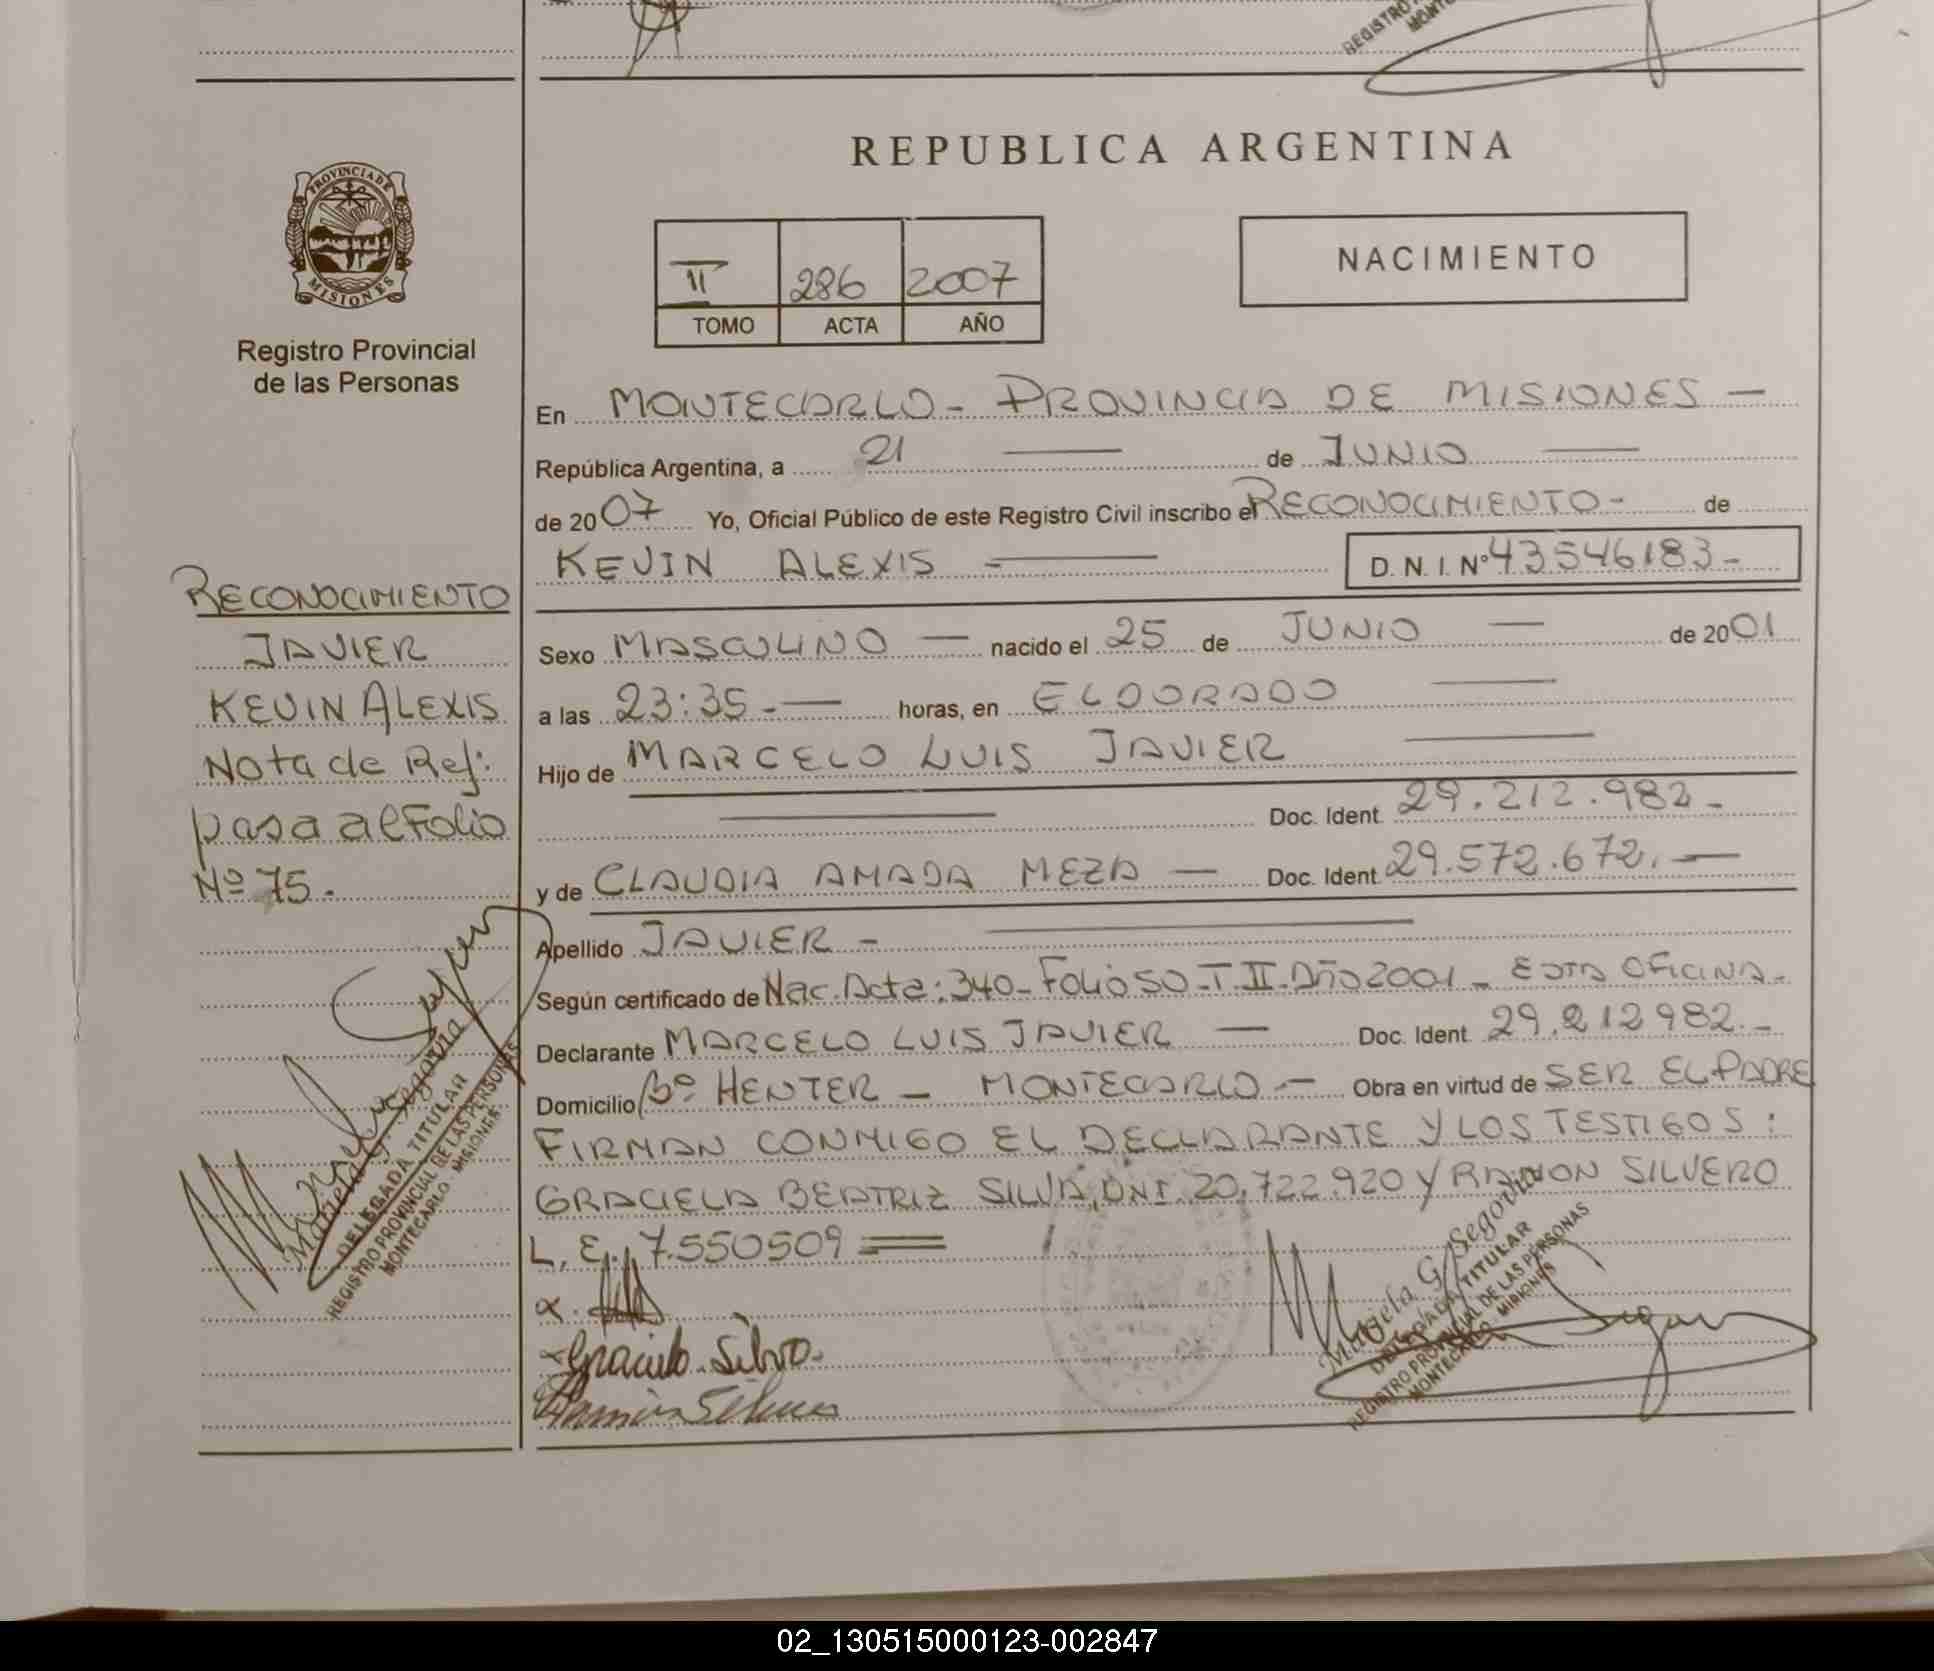 REGISTRO
MONTE
REPUBLICA ARGENTINA
PROVINCIA DE
MISIONES
Registro Provincial
de las Personas
II 286 2007
TOMO ACTA AÑO
NACIMIENTO
En MONTECARLO - PROVINCIA DE MISIONES —
República Argentina, a 21 — de JUNIO —
de 2007 Yo, Oficial Público de este Registro Civil inscribo el RECONOCIMIENTO - de
KEVIN ALEXIS — D. N. I. Nº 43546183 -
Sexo MASCULINO — nacido el 25 de JUNIO — de 2001
a las 23:35 - — horas, en ELDORADO —
Hijo de MARCELO LUIS JAVIER —
— Doc. Ident. 29.212.982 -
y de CLAUDIA AMADA MEZA — Doc. Ident. 29.572.672. —
Apellido JAVIER - —
Según certificado de Nac. Acta: 340 - Folio 50 - T. II - Año 2001 - ESTA OFICINA -
Declarante MARCELO LUIS JAVIER — Doc. Ident. 29.212982. -
Domicilio Bº HENTER - MONTECARLO - Obra en virtud de SER EL PADRE
FIRMAN CONMIGO EL DECLARANTE Y LOS TESTIGOS:
GRACIELA BEATRIZ SILVA, DNI. 20.722.920 Y RAMON SILVERO
L. E. 7.550509 =
Graciela Silva.
Ramón Silvero
Mariela G. Segovia
DELEGADA TITULAR
REGISTRO PROVINCIAL DE LAS PERSONAS
MONTECARLO - MISIONES
RECONOCIMIENTO
JAVIER
KEVIN ALEXIS
Nota de Ref:
pasa al Folio
Nº 75.
Mariela G. Segovia
DELEGADA TITULAR
REGISTRO PROVINCIAL DE LAS PERSONAS
MONTECARLO - MISIONES
02_130515000123-002847